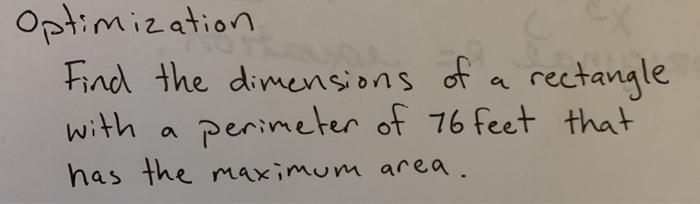 Optimization
Find the dimensions of a rectangle
with a perimeter of 76 feet that
has the maximum area.